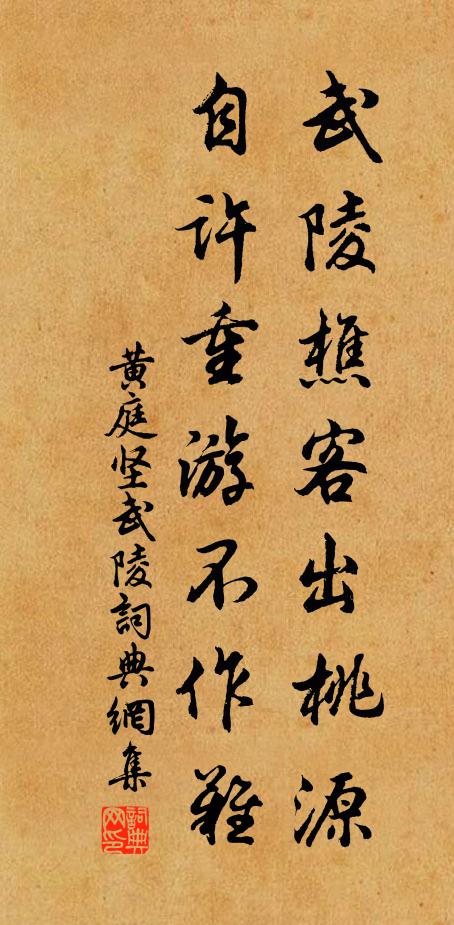 武陵樵客出桃源
自许重游不作難
黄庭坚武陵詞典網集
詞典网印